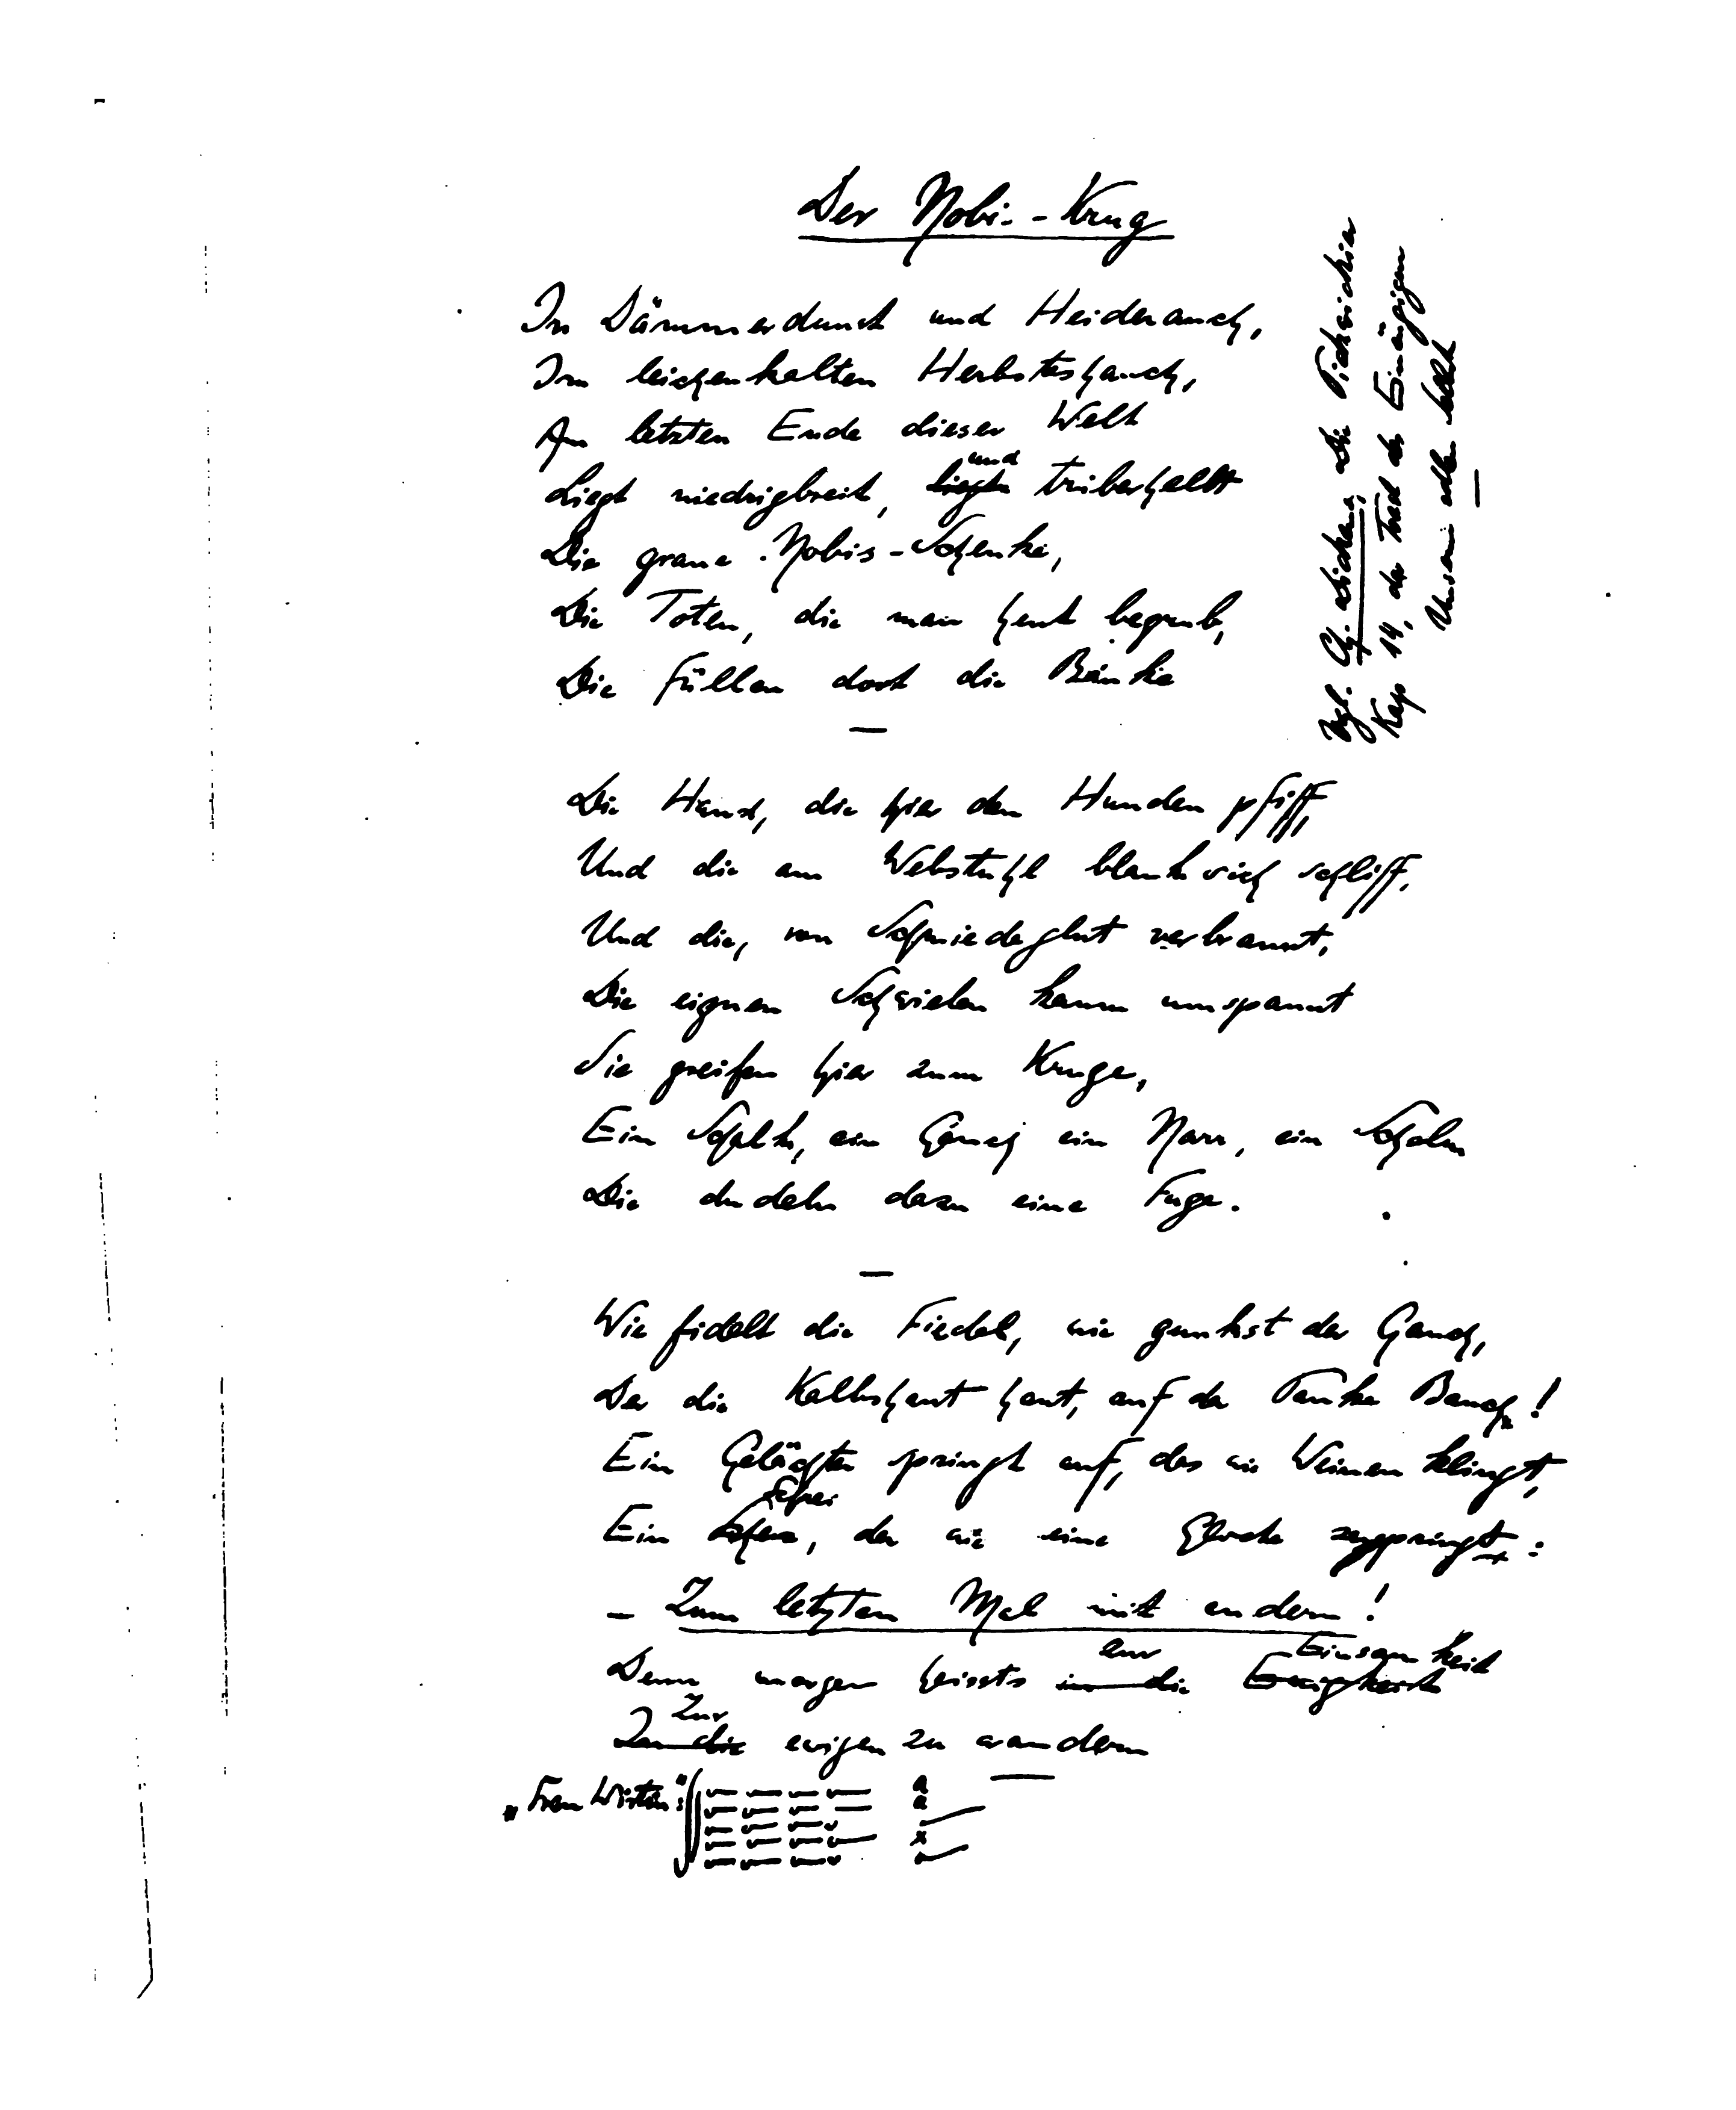 Der Nobis-Krug
In Dämmerdunst und Heiderauch,
Im leichenkalten Herbsteshauch,
Am letzten Ende dieser Welt
Liegt niedrigbreit, und trüberhellt
Die graue Nobis-Schenke,
Die Toten, die man heut begrub,
Die füllen dort die Bänke
—
Die Hand, die hier den Hunden pfiff,
Und die am Webstuhl blank sich schliff,
Und die, von Schmiedeglut verbrannt,
Die eignen Schwielen kaum umspannt
Sie greifen hier zum Kruge,
Ein Schalk, ein Gauch ein Narr, ein Schelm
Die dudeln dazu eine Fuge.
—
Wie fidelt die Fiedel, wie gunkst der Gauch,
Der die Kalbshaut haut, auf der Pauke Bauch!
Ein Gelächter springt auf, das wie Weinen klingt,
Schrei
Ein, der wie eine Glocke zerspringt:
– Zum letzten Mal mit andern!
zur Einsamkeit
Denn morgen heissts in die Ewigkeit
Zur
In die ewigen zu wandern
„Frau Wirtin“:
a
a
x
Vgl. Ch. Dickens, Die Pickwickier
Kap 14, der Trad des Einäugigen